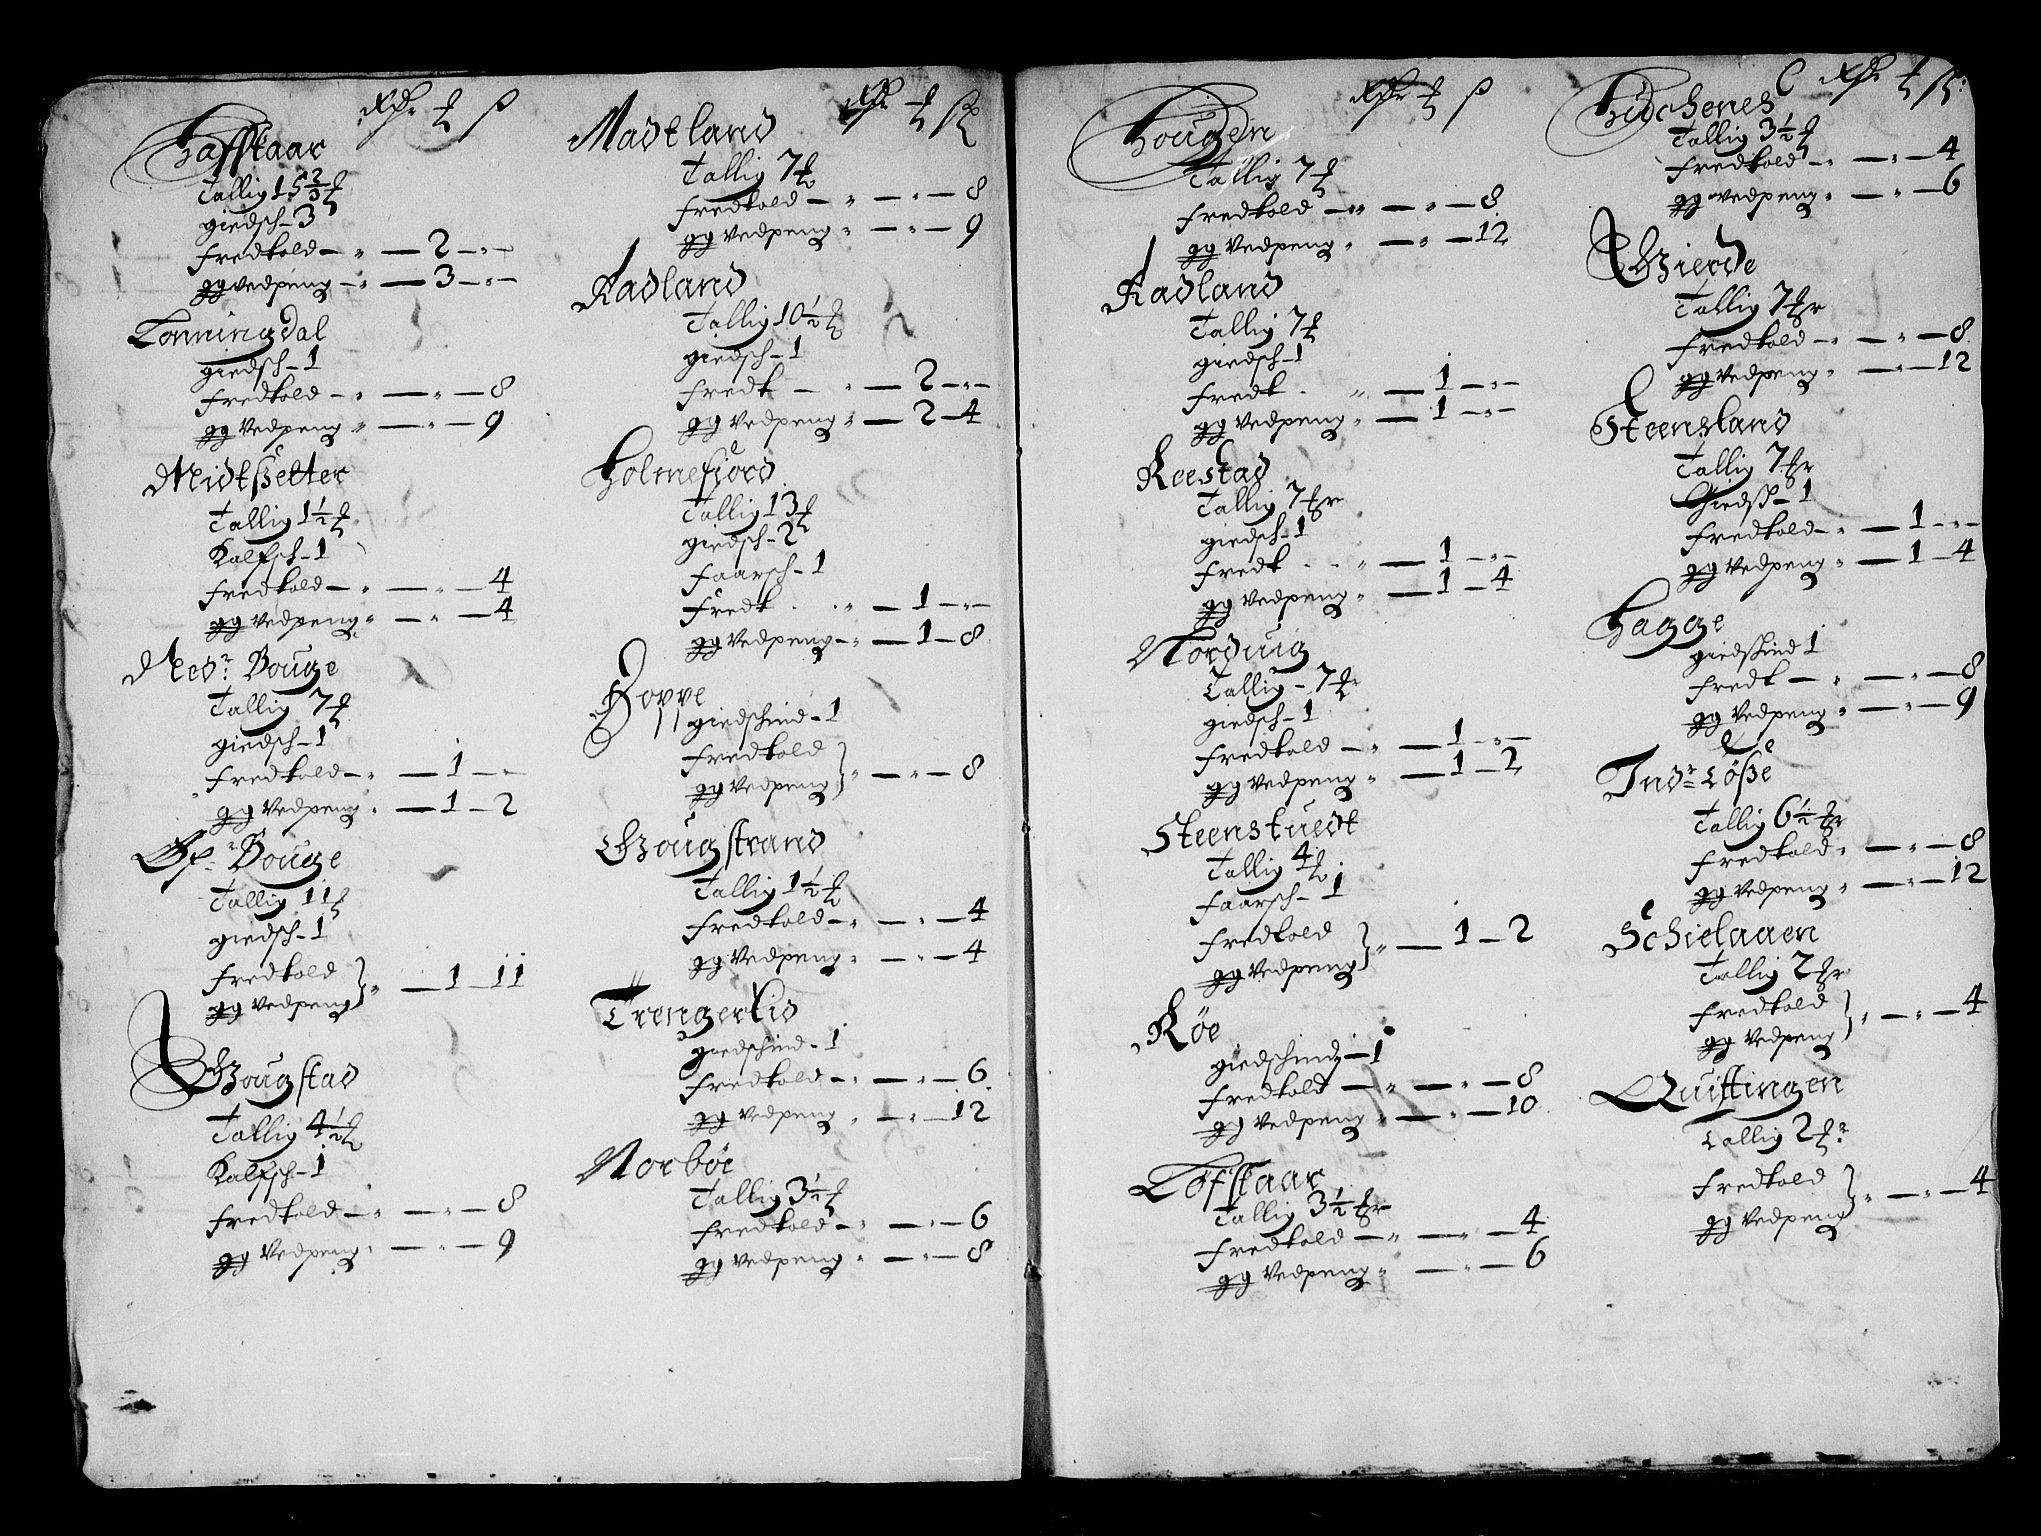 Rdr ß
Hafskaar
Tallig 15 2/3
giedsch - 3
Fredtold — " — 2 - " -
gg vedpeng — " — 3 - " -
Lonningdal
giedsch - 1
Fredtold — " — " — 8
gg Vedpeng " — " — 9
Midtsetter
Tallig 1½
Kalfsch - 1
Fredtold — " — " — 4
gg vedpeng " — " — 4
Nedr Bouge
Tallig 7
giedsch - 1
Fredtold — " — 1 - " -
gg Vedpeng " — 1 - 2
Øfr Bouge
Tallig 11
giedsch - 1
Fredtold
gg vedpeng } " — 1 - 11
Gougstad
Tallig 4½
Kalfsch - 1
Fredtold — " — " — 8
gg Vedpeng " — " — 9
Rdr ß
Madtland
Tallig 7
Fredtold — " — " — 8
gg Vedpeng " — " — 9
Aadland
Tallig 10½
giedsch - 1
Fredt — " — 2 - " -
gg vedpeng " — 2 - 4
Holmefiord
Tallig 13
giedsch - 2
Faarsch - 1
Fredt . . " — 1 - " -
gg vedpeng — " — 1 - 8
Boppe
giedschind - 1
Fredtold
gg vedpeng } " — " — 8
Gougstrand
Tallig 1½
Fredtold — " — " — 4
gg vedpeng " — " — 4
Trengerlid
giedschind - 1
Fredtold — " — " — 6
gg vedpeng " — " — 12
Norbøe
Tallig 3½
Fredtold — " — " — 6
gg vedpeng " — " — 8
Rdr ß
Hougen
Tallig 7
Fredtold — " — " — 8
gg Vedpeng " — " — 12
Aadland
Tallig 7
giedsch - 1
Fredt . " — 1 - " -
gg vedpeng " — 1 - " -
Reestad
Tallig 7
giedsch - 1
Fredt . . " — 1 - " -
gg vedpeng " — 1 - 4
Norduig
Tallig - 7
giedsch - 1
Fredtold — " — 1 - " -
gg vedpeng " — 1 - 2
Steenstuedt
Tallig 4
Faarsch - 1
Fredtold
gg Vedpeng } " — 1 - 2
Røe
giedschind - 1
Fredtold — " — " — 8
gg vedpeng " — " — 10
Løfskaar
Tallig 3½
Fredtold — " — " — 4
gg Vedpeng " — " — 6
Rdr ß
Tallig 3½
Fredtold — " — " — 4
gg vedpeng " — " — 6
Gierde
Tallig 7
Fredtold — " — " — 8
gg vedpeng " — " — 12
Steensland
Tallig 7
Giedsk - 1
Fredtold — " — 1 - " -
gg Vedpeng " — 1 - 4
Hagge
giedskind 1
Fredt — " — " — 8
gg Vedpeng " — " — 9
Indr Løße
Tallig 6½
Fredtold " — " — 8
gg vedpeng " — " — 12
Schielaaen
Tallig 2
Fredtold
gg vedpeng } " — " — 4
Quittingen
Tallig 2
Fredtold
gg Vedpeng } " — " — 4